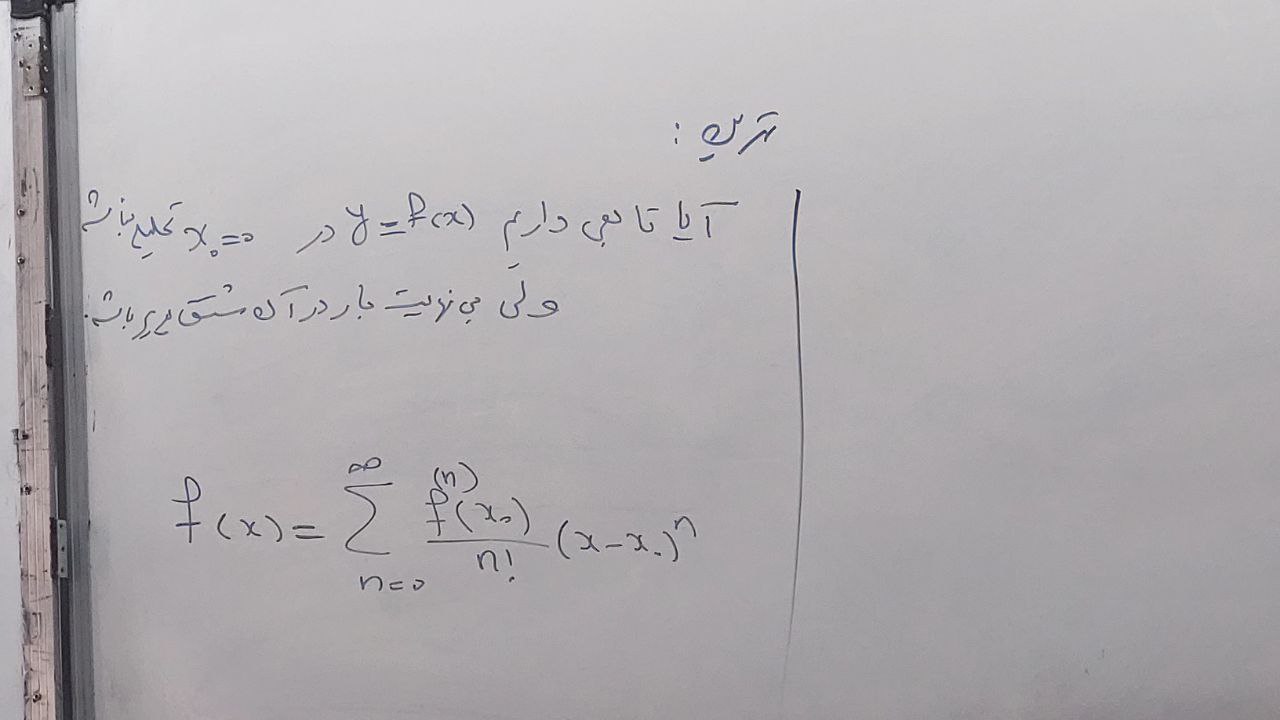 تمرین :
آیا تابعی داریم y=f(x) در x₀=0 تحلیلی نباشد
ولی بی نهایت بار در آن مشتق پذیر باشد.
f(x) = \sum_{n=0}^{\infty} \frac{f^{(n)}(x_0)}{n!} (x-x_0)^n